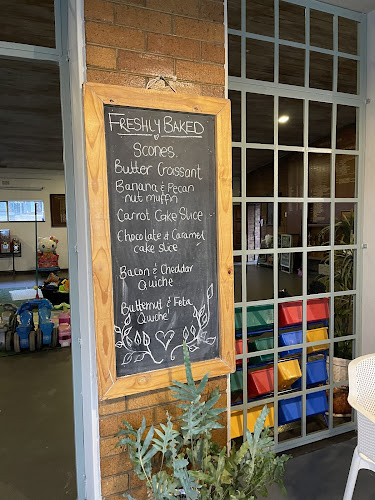 FRESHLY BAKED
Scones.
Butter Croissant
Banana & Pecan
nut muffin
Carrot Cake Slice
Chocolate & Caramel
cake slice
Bacon & Cheddar
Quiche
Butternut & Feta
Quiche